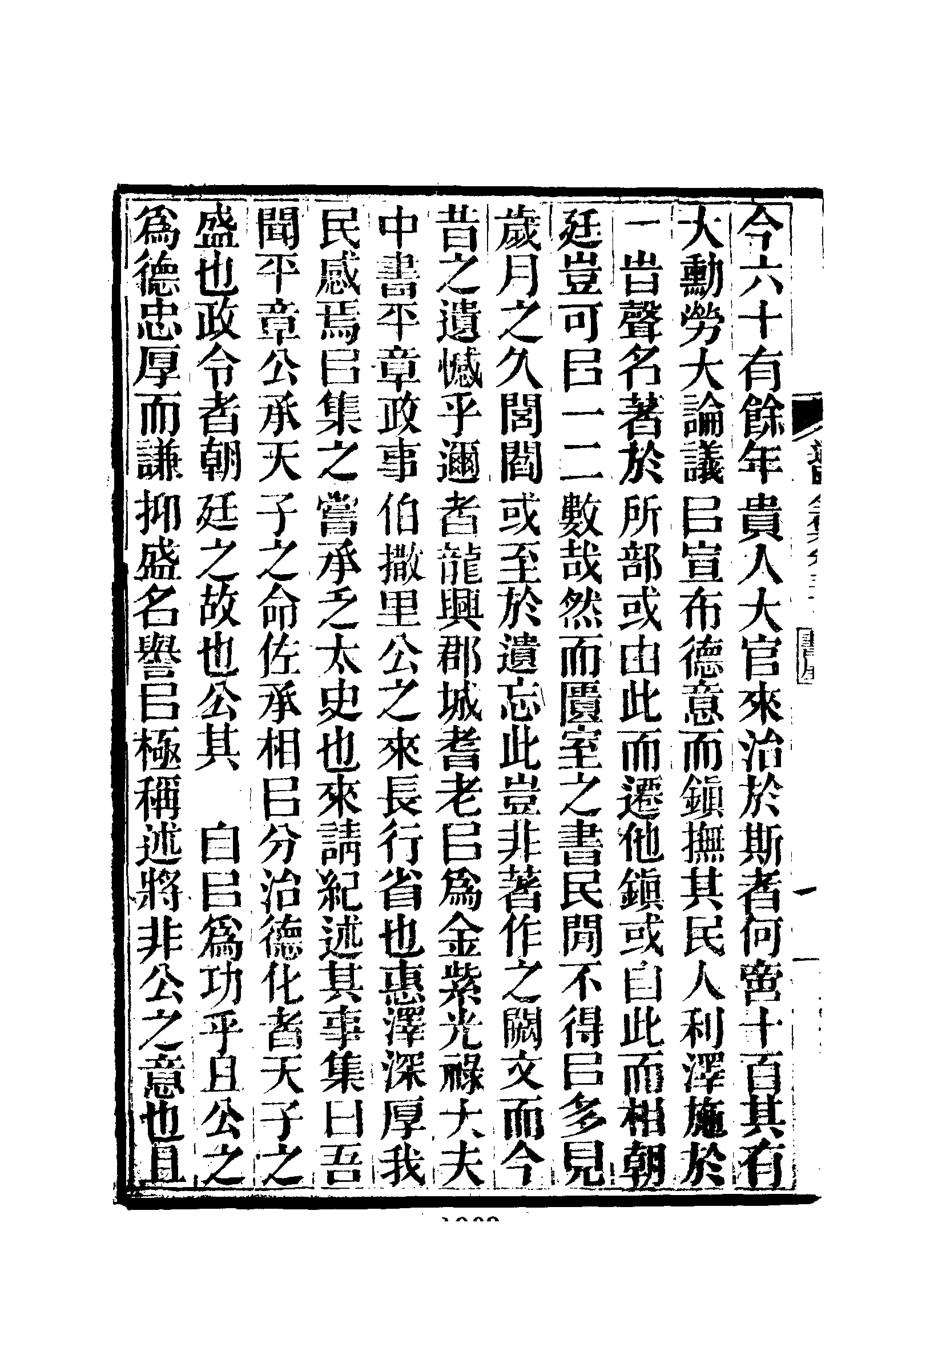 今六十有餘年貴人大官來治於斯者何啻十百其有
大勳勞大論議㠯宣布德意而鎭撫其民人利澤施於
一旹聲名著於所部或由此而遷他鎭或自此而相朝
廷豈可㠯一二數哉然而匱室之書民閒不得㠯多見
歲月之久閭閻或至於遺忘此豈非著作之闕文而今
昔之遺憾乎邇者龍興郡城耆老㠯爲金紫光祿大夫
中書平章政事伯撒里公之來長行省也惠澤深厚我
民感焉㠯集之嘗承乏太史也來請紀述其事集曰吾
聞平章公承天子之命佐承相㠯分治德化者天子之
盛也政令者朝廷之故也公其　自㠯爲功乎且公之
爲德忠厚而謙抑盛名譽㠯極稱述將非公之意也且